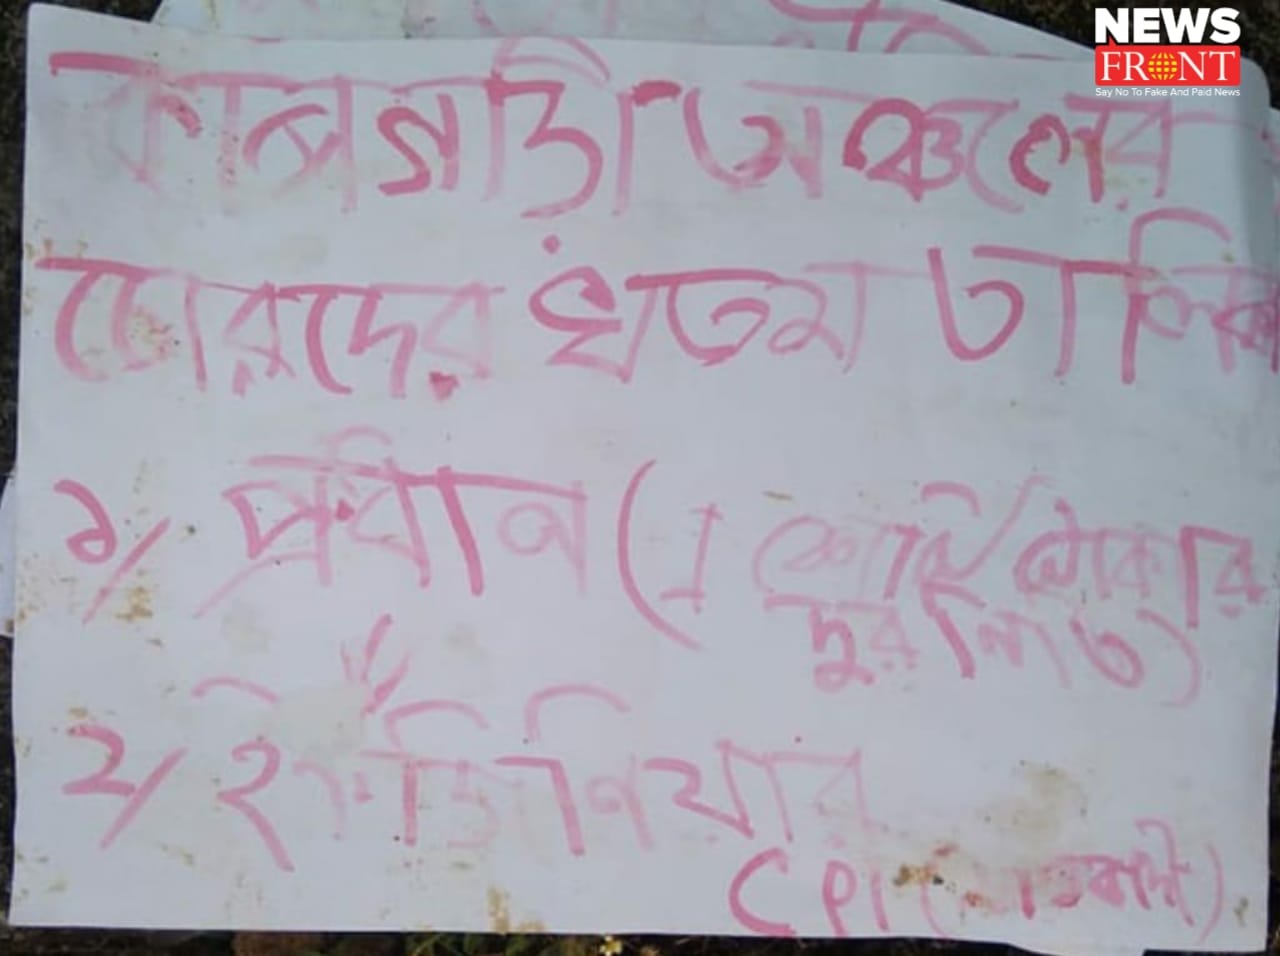 NEWS
FRONT
Say No To Fake And Paid News
অঞ্চলের
চোরদের খতম তালিকা
১/ প্রধান (1 কোটি টাকার
২/ ইঞ্জিনিয়ার
CPI (মাওবাদী)